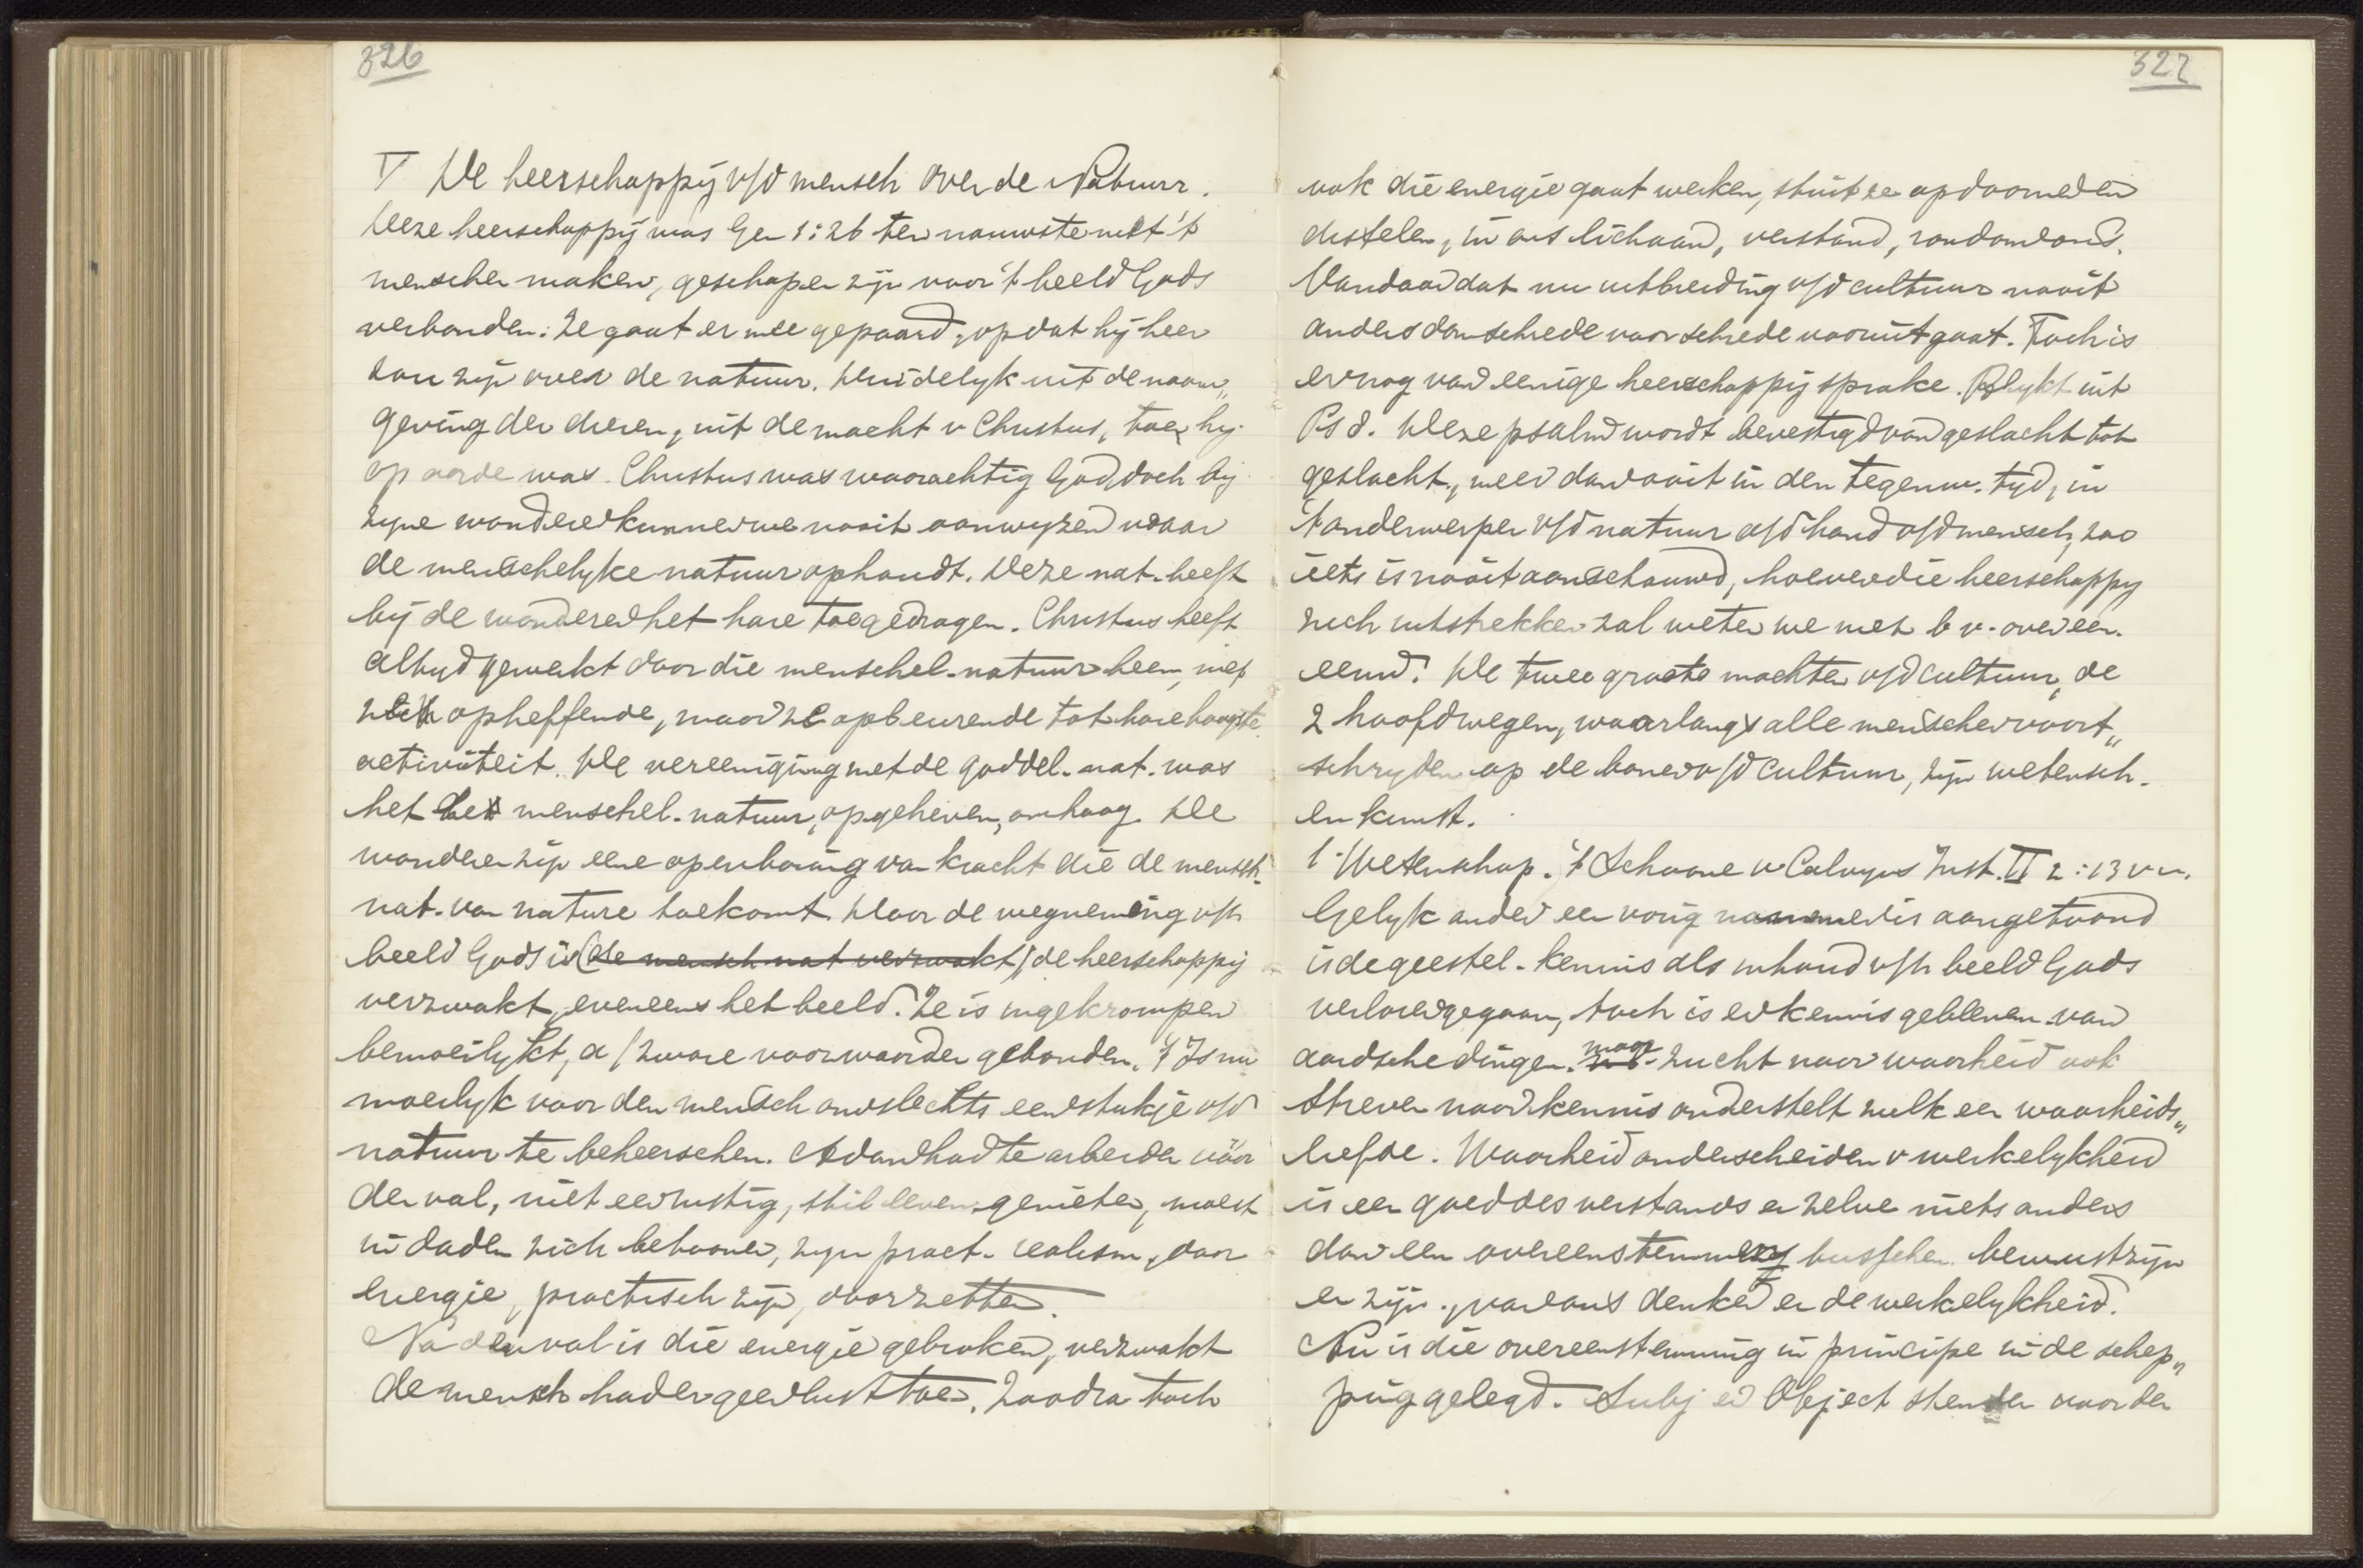 326
V De heerschappij v/d mensch over de Natuur.
Deze heerschappij was Gen 1:26 ten nauwste met 't
menschen maken, geschapen zijn naar 't beeld Gods
verbonden: Ze gaat er mee gepaard, opdat hij heer
zou zijn over de natuur. Duidelyk uit de naam„
geving der dieren, uit de macht v Christus, toen hij
op aarde was. Christus was waarachtig God, doch bij
zyne wonderen kunnen we nooit aanwyzen waar
de menschelyke natuur ophoudt. Deze nat. heeft
bij de wonderen het hare toegedragen. Christus heeft
altyd gewerkt door die menschel. natuur heen, niet
opheffende, maar ze opbeurende tot hare hoogste
activiteit. De vereeniging met de goddel. nat. was
het der menschel. natuur, opgeheven, omhoog. De
wonderen zijn eene openbaring van kracht die de mensch.
nat. van nature toekomt. Door de wegneming v/h
beeld Gods is (de mensch nat verzwakt) de heerschappij
verzwakt, eveneens het beeld. Ze is ingekrompen
bemoeilykt, a/ zware voorwaarden gebonden. 't Is nu
moeilyk voor den mensch om slechts een stukje v/d
natuur te beheerschen. Adam had te arbeiden vóór
den val, niet een rustig, stil leven genieten, moest
in daden zich betoonen, zyn pract. realism, door
energie, practisch zijn, doorzetten.
Na den val is die energie gebroken, verzwakt
de mensch had er geen lust toe. Zoodra toch
327
ook die energie gaat werken, stuit ze op doornen en
distelen, in ons lichaam, verstand, rondom ons.
Vandaar dat nu uitbreiding v/d cultuur nooit
anders dan schrede voor schrede vooruitgaat. Toch is
er nog van eenige heerschappij sprake. Blykt uit
Ps 8. Deze psalm wordt bevestigd van geslacht tot
geslacht, meer dan ooit in den tegenw. tyd, in
't onderwerpen v/d natuur a/d hand v/d mensch, zoo
iets is nooit aanschouwd, hoever die heerschappy
zich uitstrekken zal weten we niet b v. over een.
eeuw! De twee groote machten v/d cultuur, de
2 hoofdwegen, waarlangs alle menschen voort„
schryden op de banen v/d cultuur, zijn wetensch.
en kunst.
1. Wetenschap. 't Schoone v Calvyns Inst. II 2:13 v v.
Gelyk onder een vorig nommer is aangetoond
is de geestel. kennis als inhoud v/h beeld Gods
verloren gegaan, toch is er kennis gebleven van
aardsche dingen. maar zucht naar waarheid ook
streven naar kennis onderstelt zulk een waarheids„
liefde. Waarheid onderscheiden v werkelykheid
is een goed des verstands en zelve niets anders
dan een overeenstemming tusschen bewustzijn
en zijn, van ons denken en de werkelykheid.
Nu is die overeenstemming in principe in de schep„
ping gelegd. Subj en Object stemden voor den